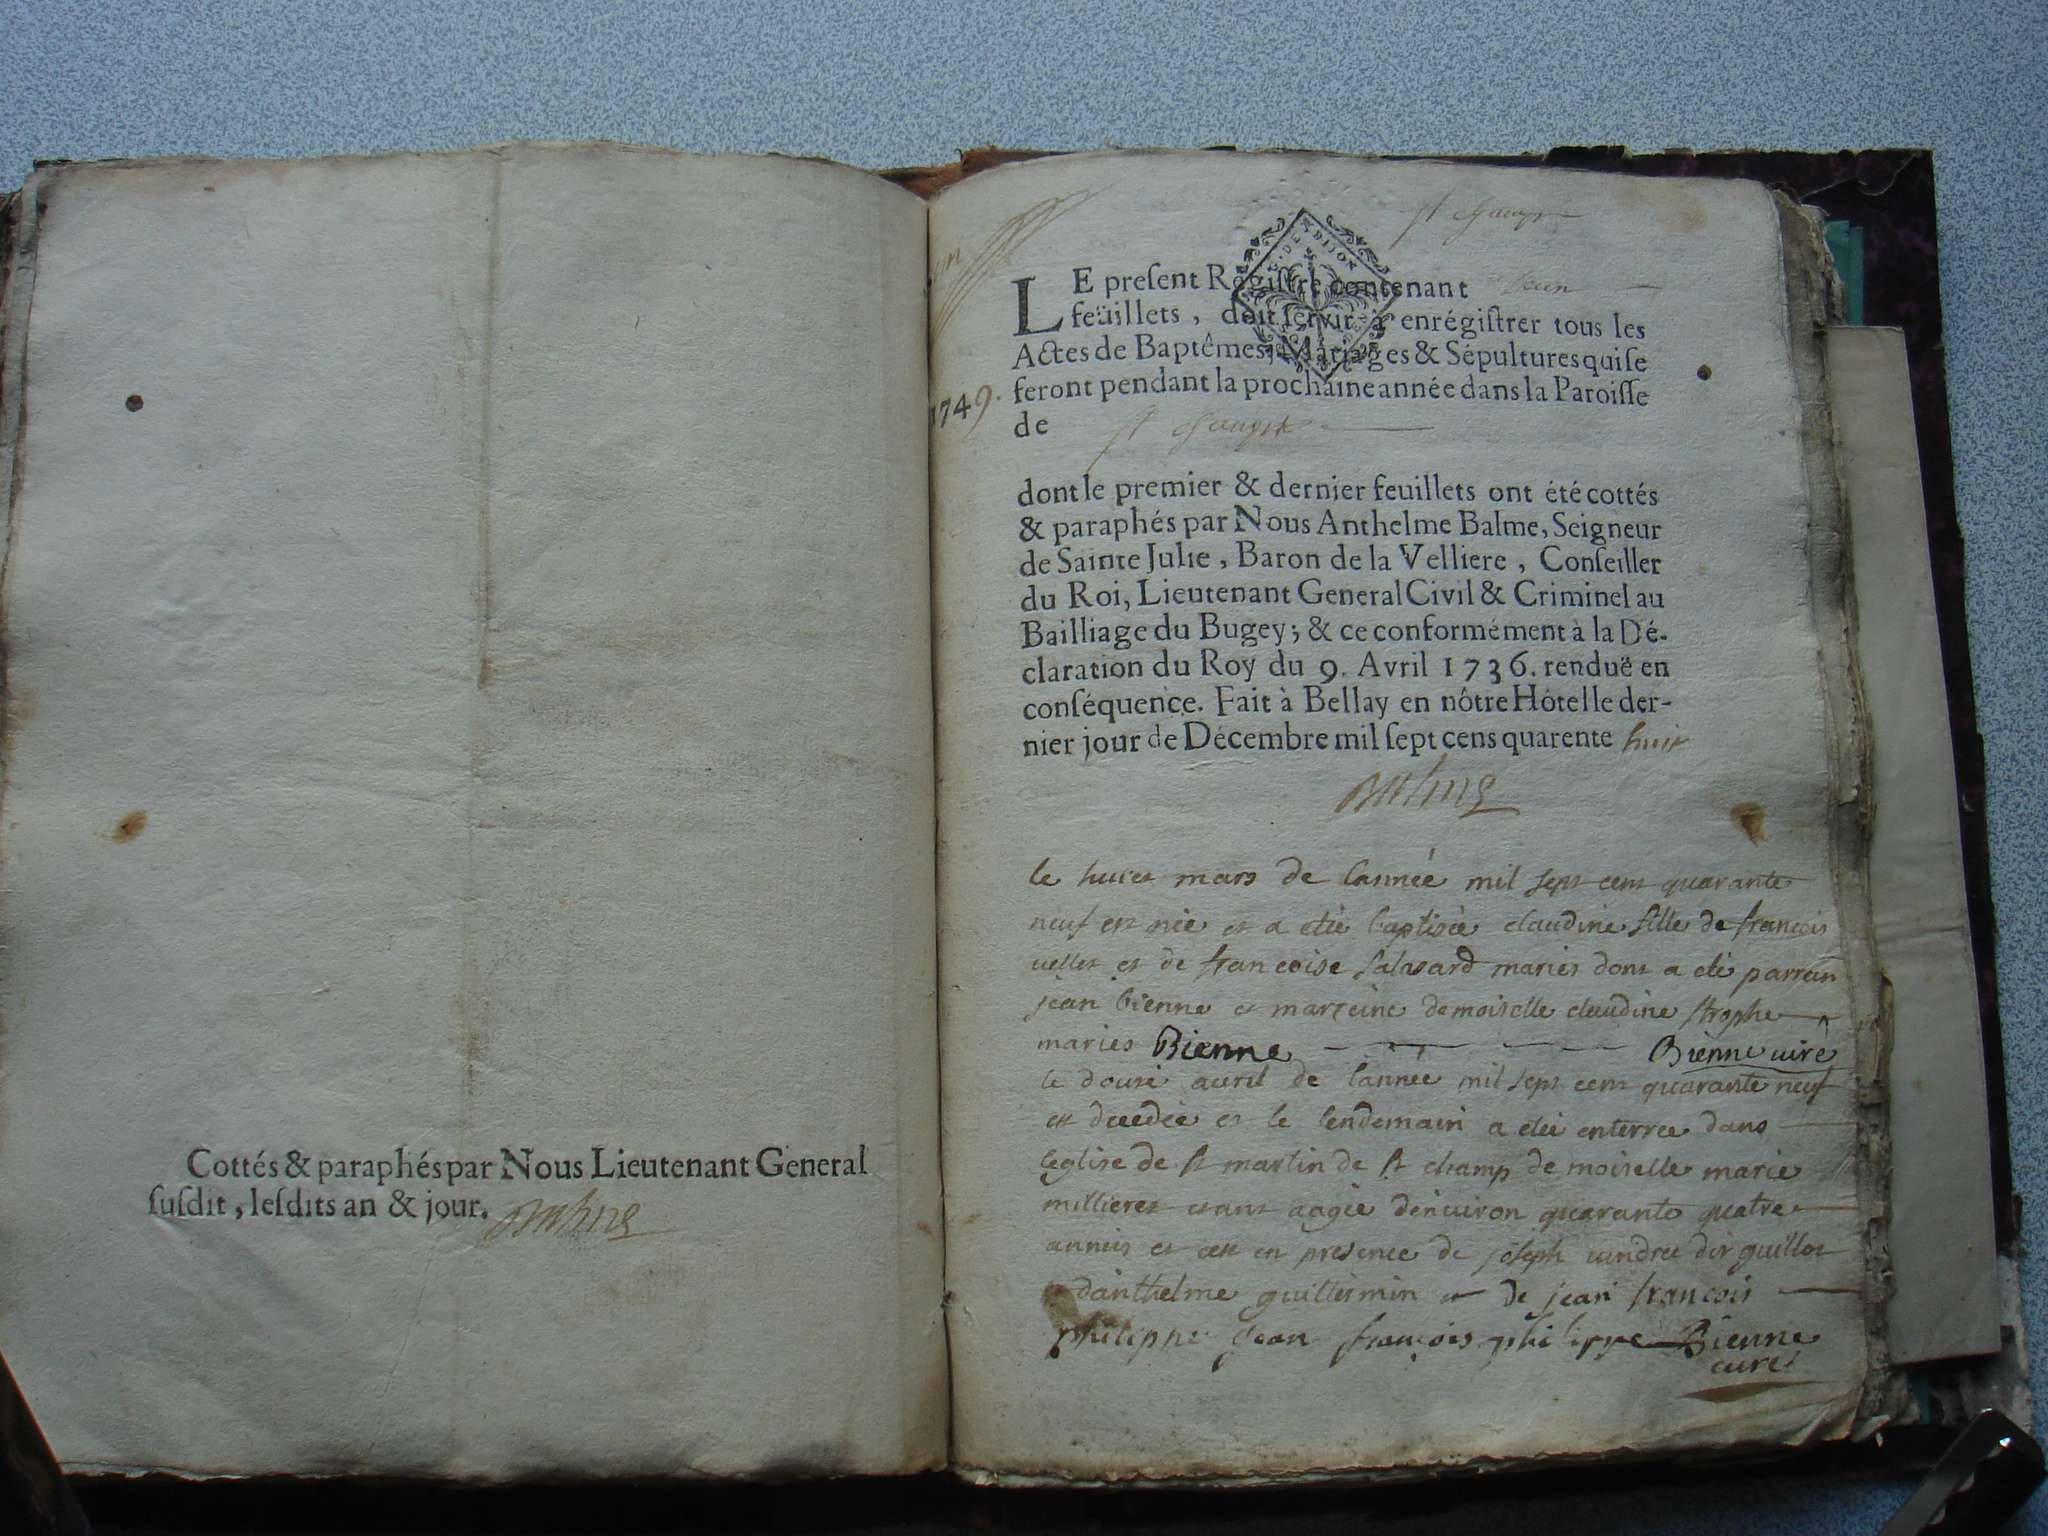 Cottés & paraphés par Nous Lieutenant General
ſuſdit, leſdits an & jour. Balme
St champ
G. DE DIJON
LE preſent Régiſtre contenant
feüillets, doit ſervir à enrégiſtrer tous les
Actes de Baptêmes, Mariages & Sépultures qui ſe
feront pendant la prochaine année dans la Paroiſſe
1749.
de St champ
dont le premier & dernier feuillets ont été cottés
& paraphés par Nous Anthelme Balme, Seigneur
de Sainte Julie, Baron de la Velliere, Conſeiller
du Roi, Lieutenant General Civil & Criminel au
Bailliage du Bugey; & ce conformément à la Dé-
claration du Roy du 9. Avril 1736. renduë en
conſéquence. Fait à Bellay en nôtre Hôtel le der-
nier jour de Décembre mil ſept cens quarente huit
Balme
le huict mars de lannée mil sept cent quarante
neuf est née et a etée baptisée claudine fille de francois
et de francoise salasard mariés dont a eté parrain
jean bienne et marreine demoiselle claudine
mariés Bienne Bienne curé
le douse avril de l'année mil sept cent quarante neuf
est decedée et le lendemain a etée enterrée dans
leglise de st martin de st champ demoiselle marie
millieret etant aagée d'environ quarante quatre
années et cest en presence de joseph dit guillot
d'anthelme guillermin et de jean francois
philippe jean françois philippe Bienne
curé